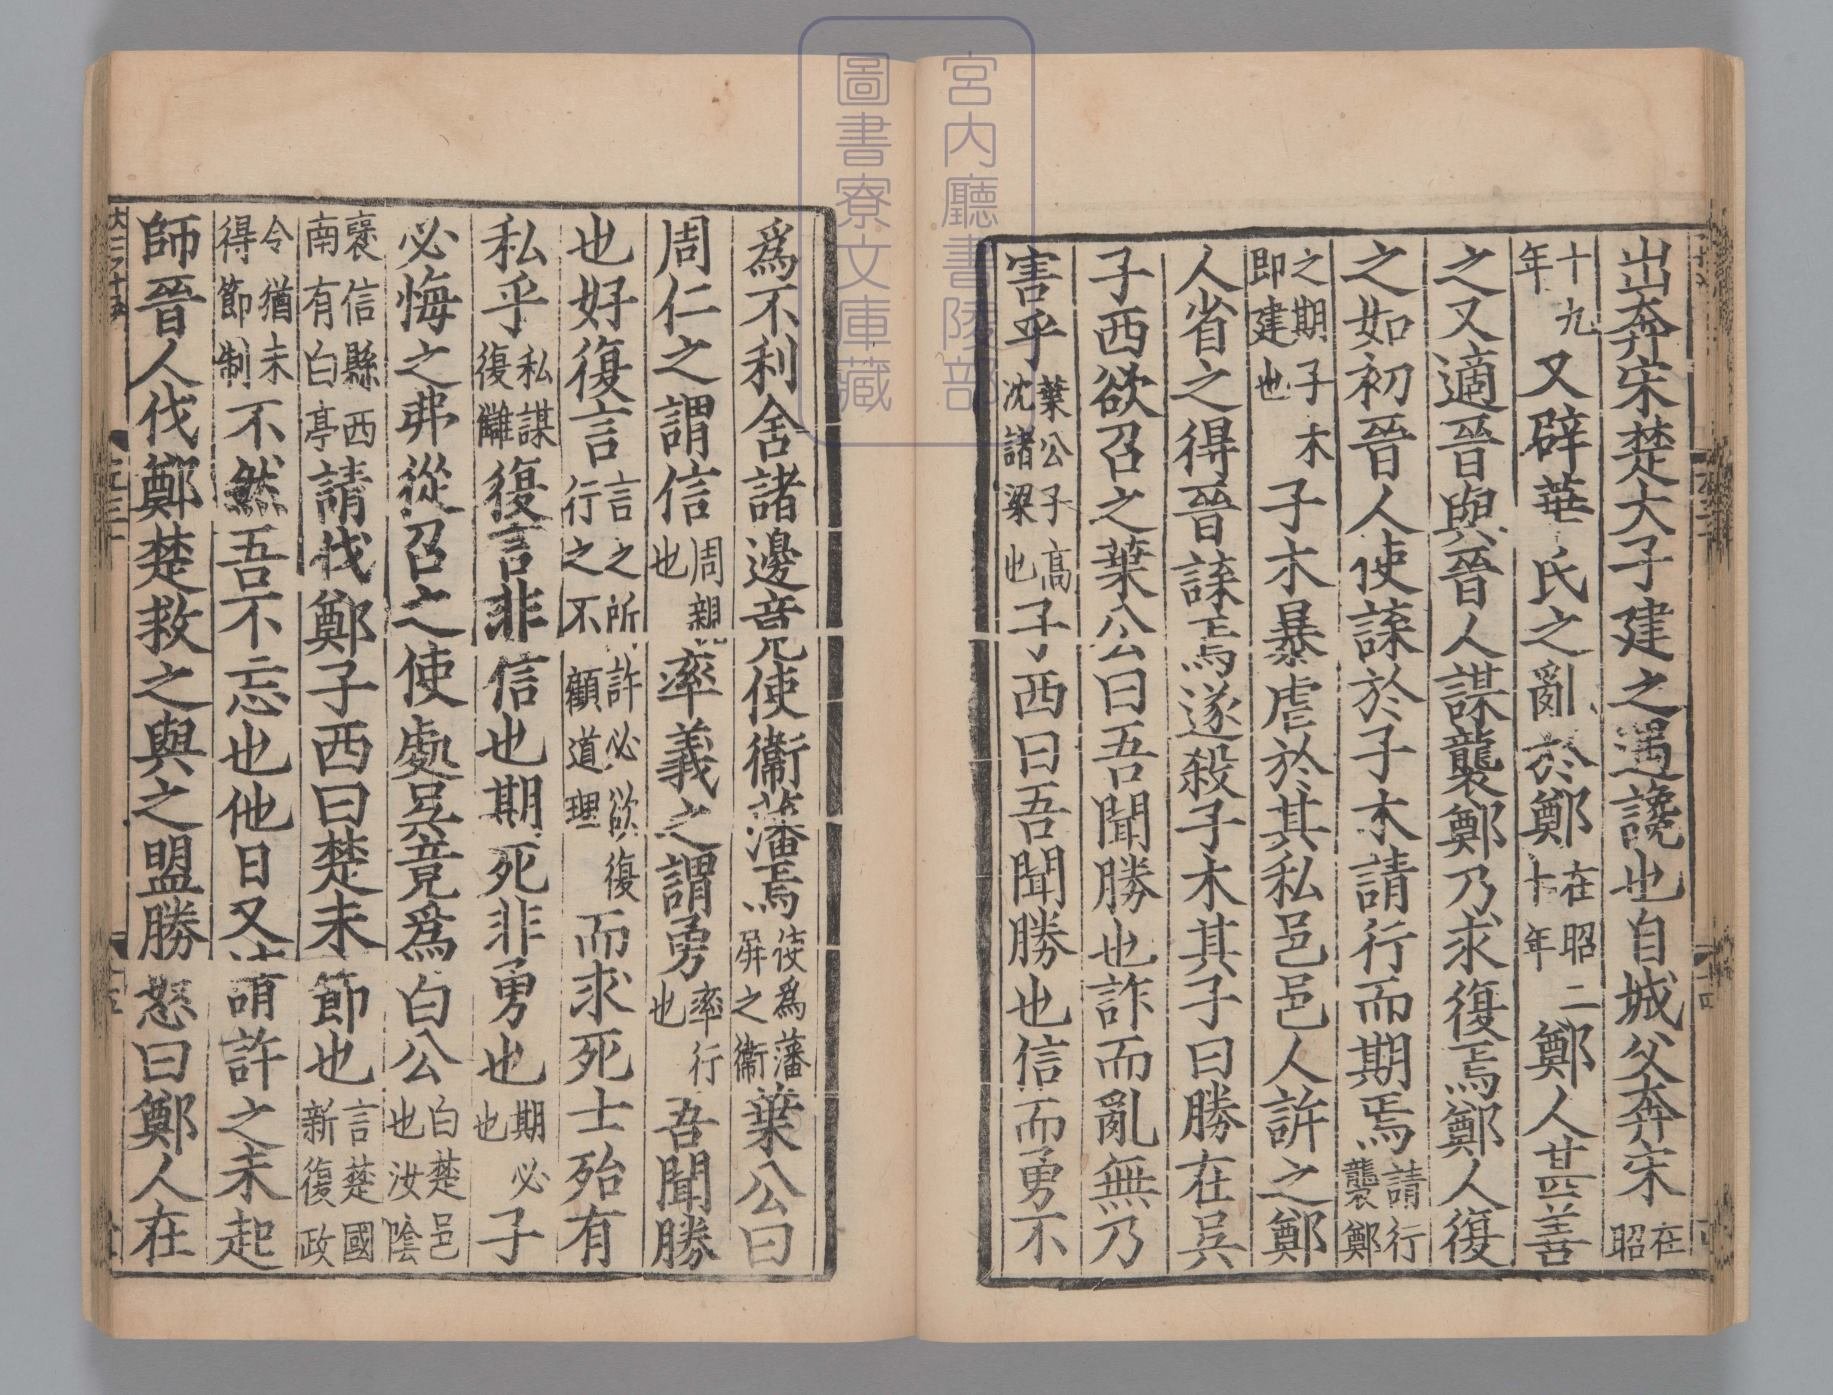 出奔宋楚大子建之遇讒也自城父奔宋在昭
十九年又辟華氏之亂於鄭在昭二十年鄭人甚善
之又適晉與晉人謀襲鄭乃求復焉鄭人復
之如初晉人使諜於子木請行而期焉請行襲鄭
之期子木即建也子木暴虐於其私邑邑人訴之鄭
人省之得晉諜焉遂殺子木其子曰勝在吳
子西欲召之葉公曰吾聞勝也詐而亂無乃
害乎葉公子高沈諸梁也子西曰吾聞勝也信而勇不
爲不利舍諸邊竟使衞藩焉使爲藩屏之衞葉公曰
周仁之謂信周親也率義之謂勇率行也吾聞勝
也好復言言之所許必欲復行之不顧道理而求死士殆有
私乎私謀復讎復言非信也期死非勇也期必也子
必悔之弗從召之使處吳竟爲白公白楚邑也汝陰
襃信縣西南有白亭請伐鄭子西曰楚未節也言楚國新復政
令猶未得節制不然吾不忘也他日又請許之未起
師晉人伐鄭楚救之與之盟勝怒曰鄭人在
宮内廳書陵部
圖書寮文庫藏